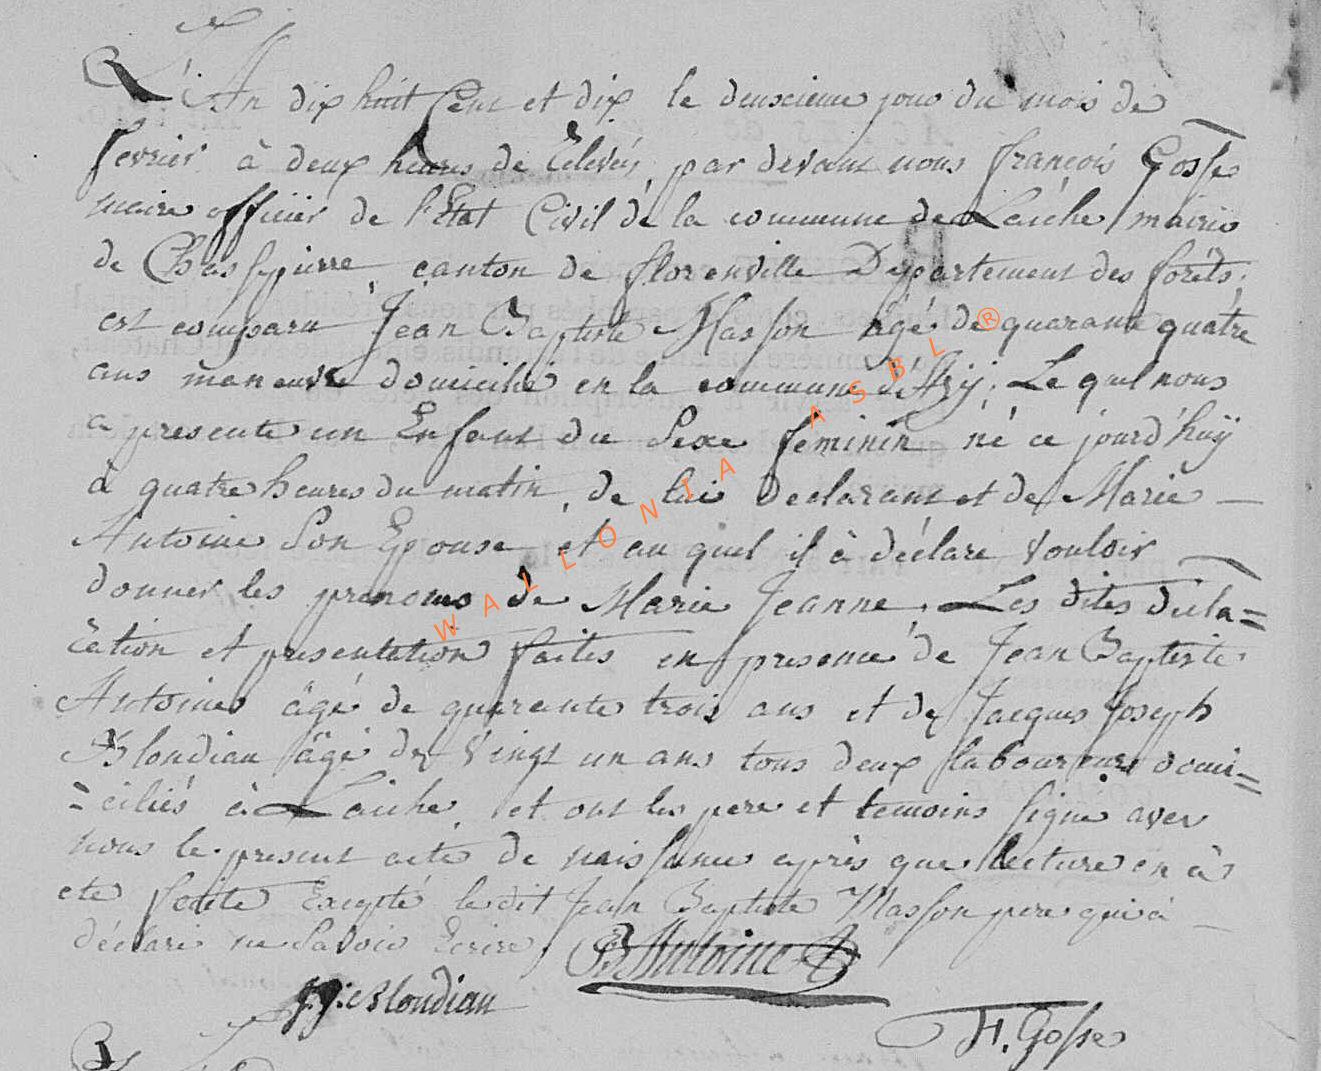 L'An dix huit Cent et dix le deuxcieme jour du mois de
fevrier à deux heures de relevéé, par devant nous françois Gosse
maire officier de l'Etat Civil de la commune de Laiche mairie
de Chassepierre canton de florenville Departement des forêts;
est comparu Jean Baptiste Masson âgé de quarante quatre
ans manœuvre domicilié en la commune d'Azÿ; Le quel nous
a presenté un Enfant du Sexe feminin né ce jourd'huÿ
à quatre heures du matin, de lui Declarant et de Marie
Antoine Son Epouse, et au quel il à déclaré vouloir
donner les prenoms de Marie Jeanne, Les dites decla=
ration et presentation faites en presence de Jean Baptiste
Antoine âgé de quarente trois ans et de Jacques Joseph
Blondiau âgé de vingt un ans tous deux laboureurs domi=
=ciliés à Laiche, et ont les pere et temoins signé avec
nous le present acte de naissance après que lecture en à
eté faite Excepté le dit Jean Baptiste Masson pere qui à
déclaré ne Savoir Ecrire.
JB Antoine
J.J. Blondiau
F. Gosse
WALLONIA ASBL ®